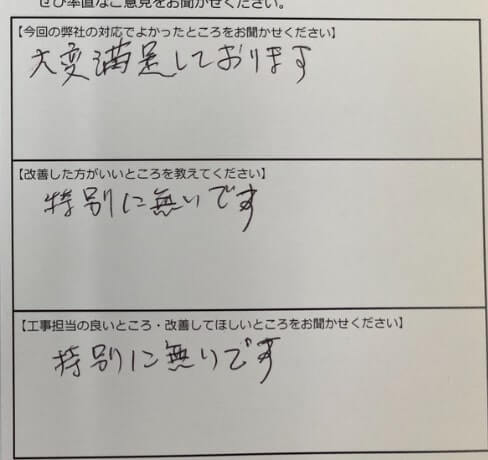 ぜひ率直なご意見をお聞かせください。
【今回の弊社の対応でよかったところをお聞かせください】
大変満足しております
【改善した方がいいところを教えてください】
特別に無いです
【工事担当の良いところ・改善してほしいところをお聞かせください】
特別に無いです